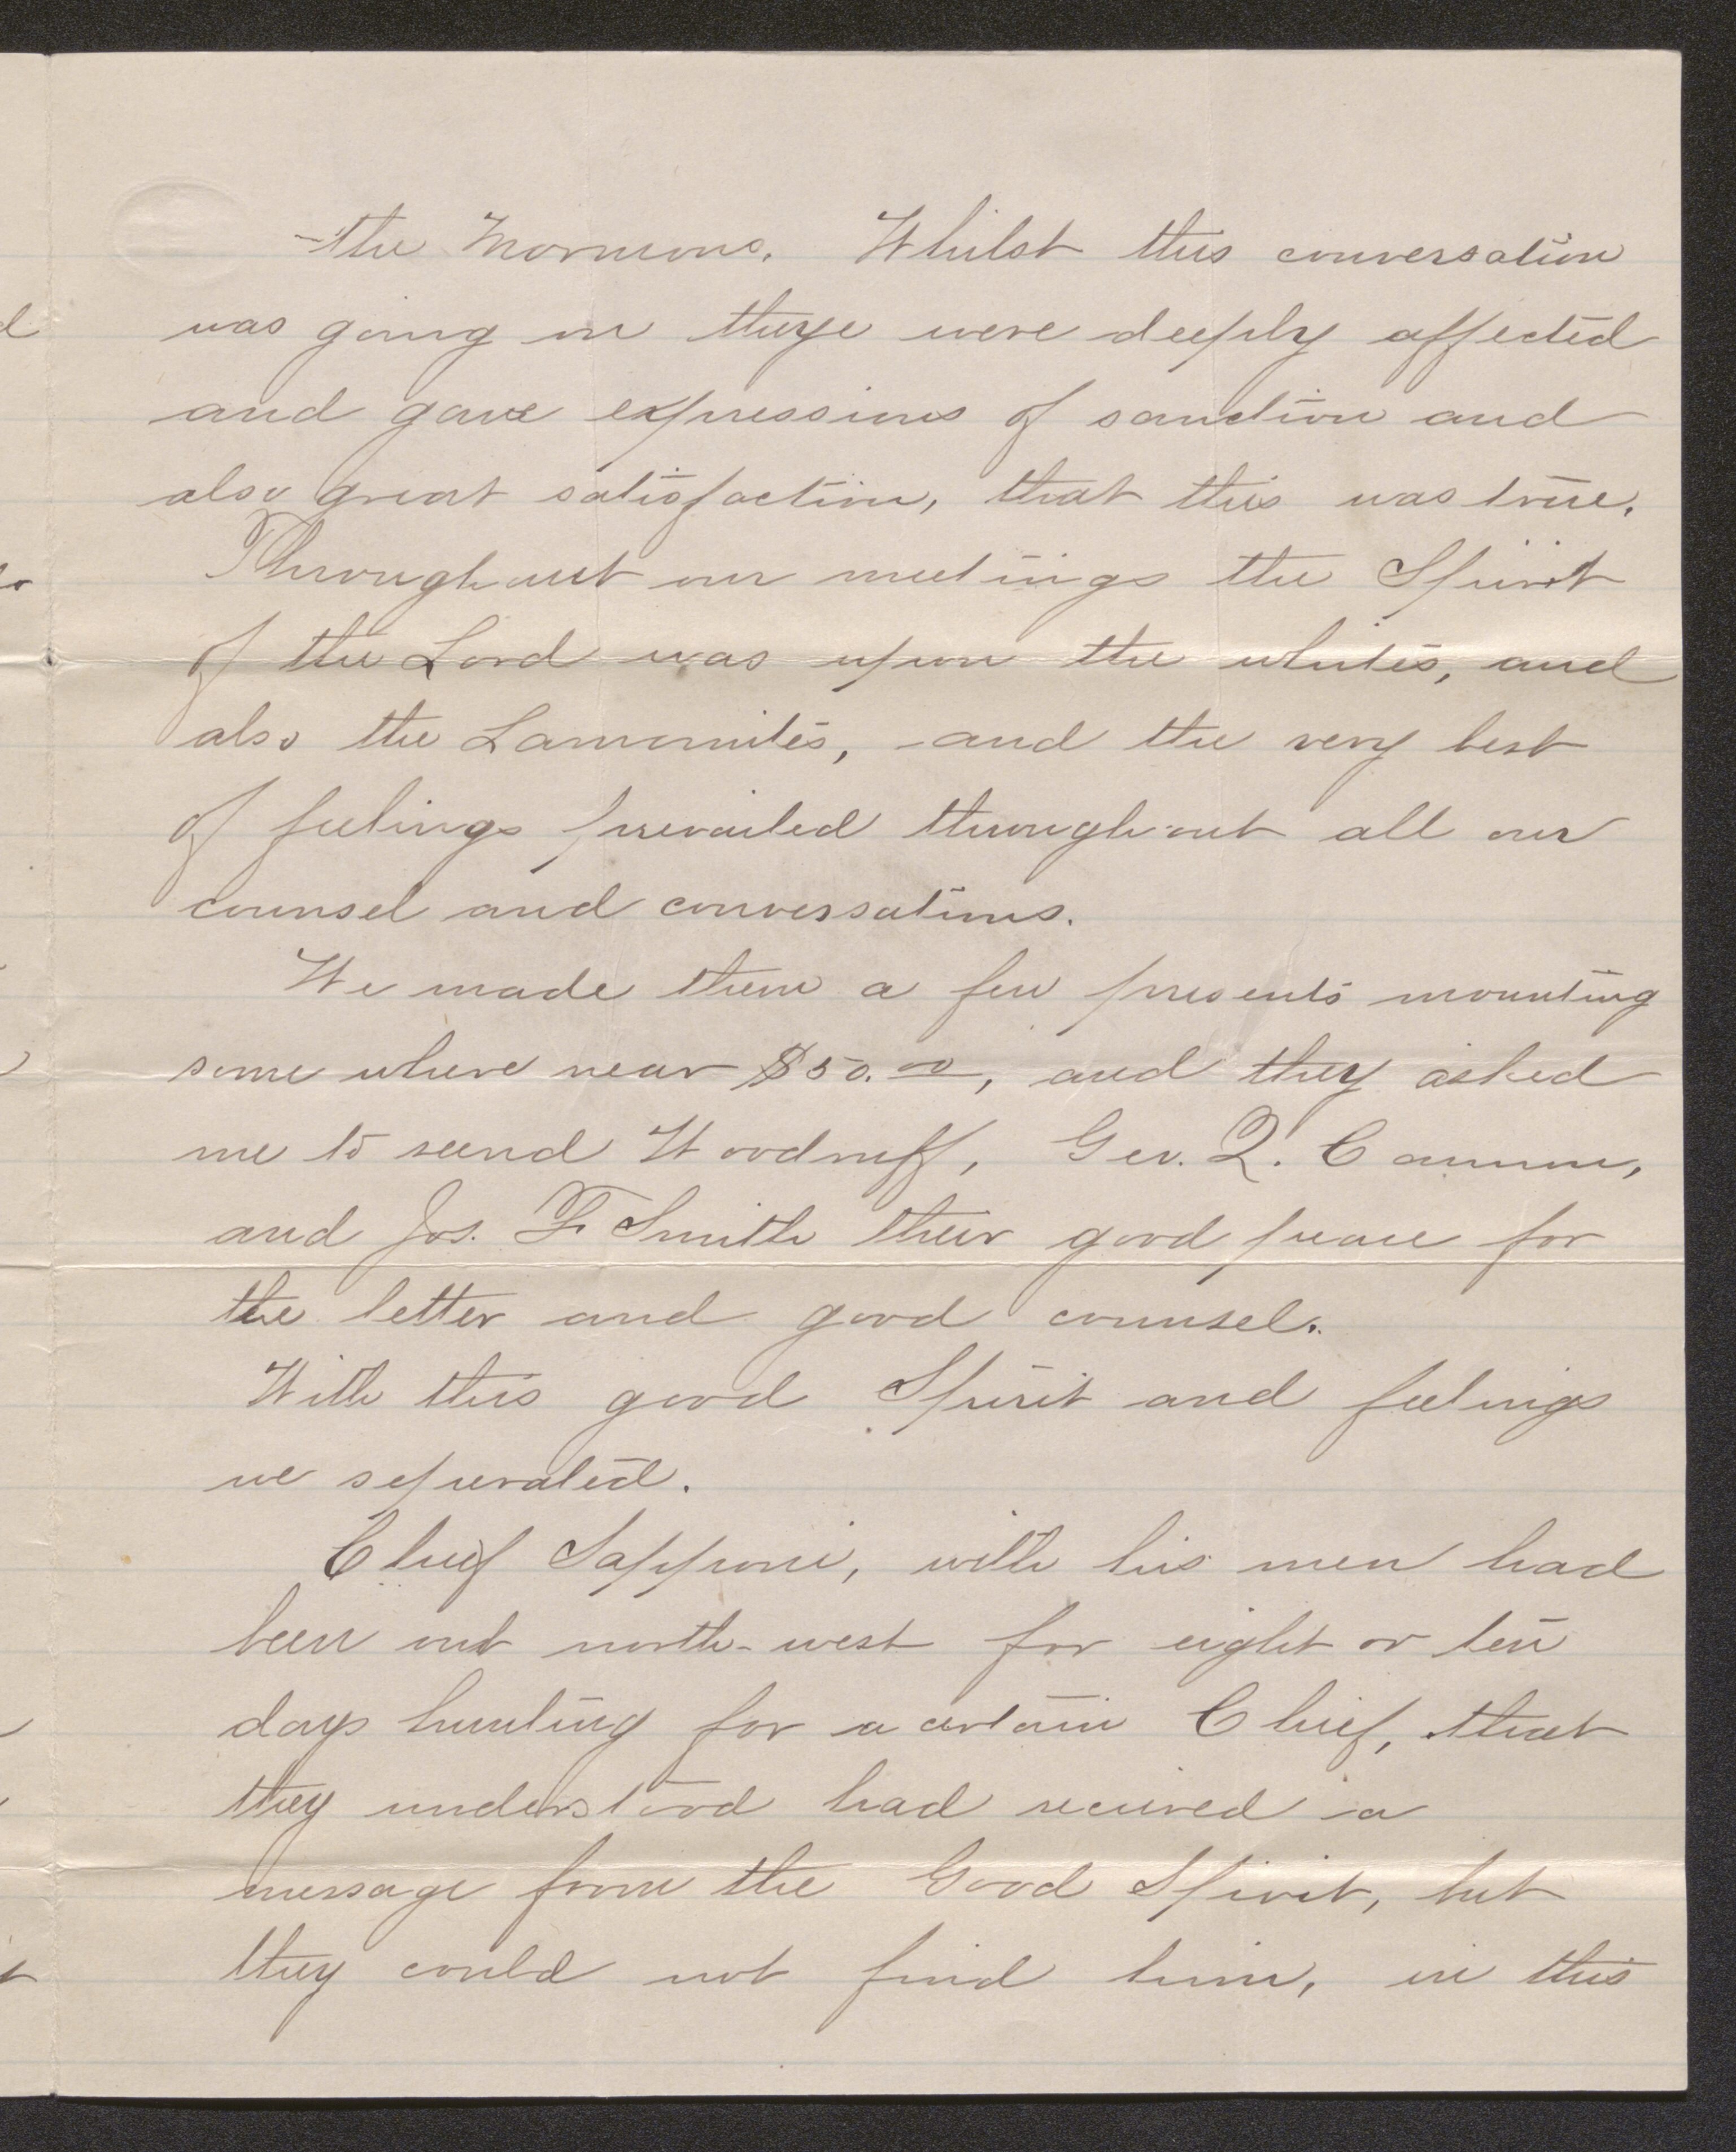 the Mormons. Whilst this conversation
was going on theye were deeply affected
and gave expressions of sanction and
also great satisfaction, that this was true.
Throughout our meetings the Spirit
of the Lord was upon the whites, and
also the Lammnites, and the very best
of feelings prevailed through-out all our
counsel and conversations.
We made them a few presents mounting
some where near $50.00, and they asked
me to seend Woodruff, Geo. Q. Cannon,
and Jos. F Smith their good peace for
the letter and good counsel.
With this good Spirit and feelings
we seperated.
Chief Sapponi, with his men had
been out north-west for eight or ten
days hunting for a certain Chief, that
they understood had recieved a
message from the Good Spirit, but
they could not find him, in this